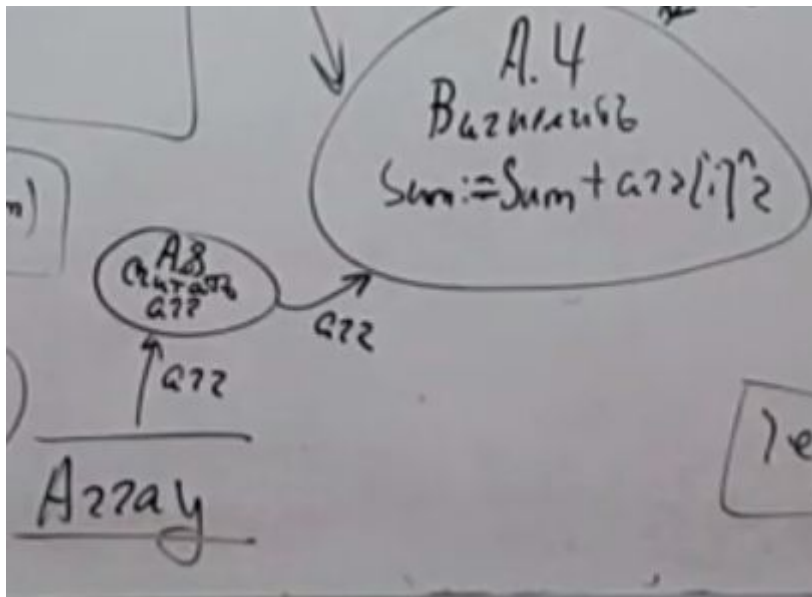 A.4
Вычислить
Sum:=Sum+arr[i]^2
m)
A.8
Считать
arr
arr
arr
Array